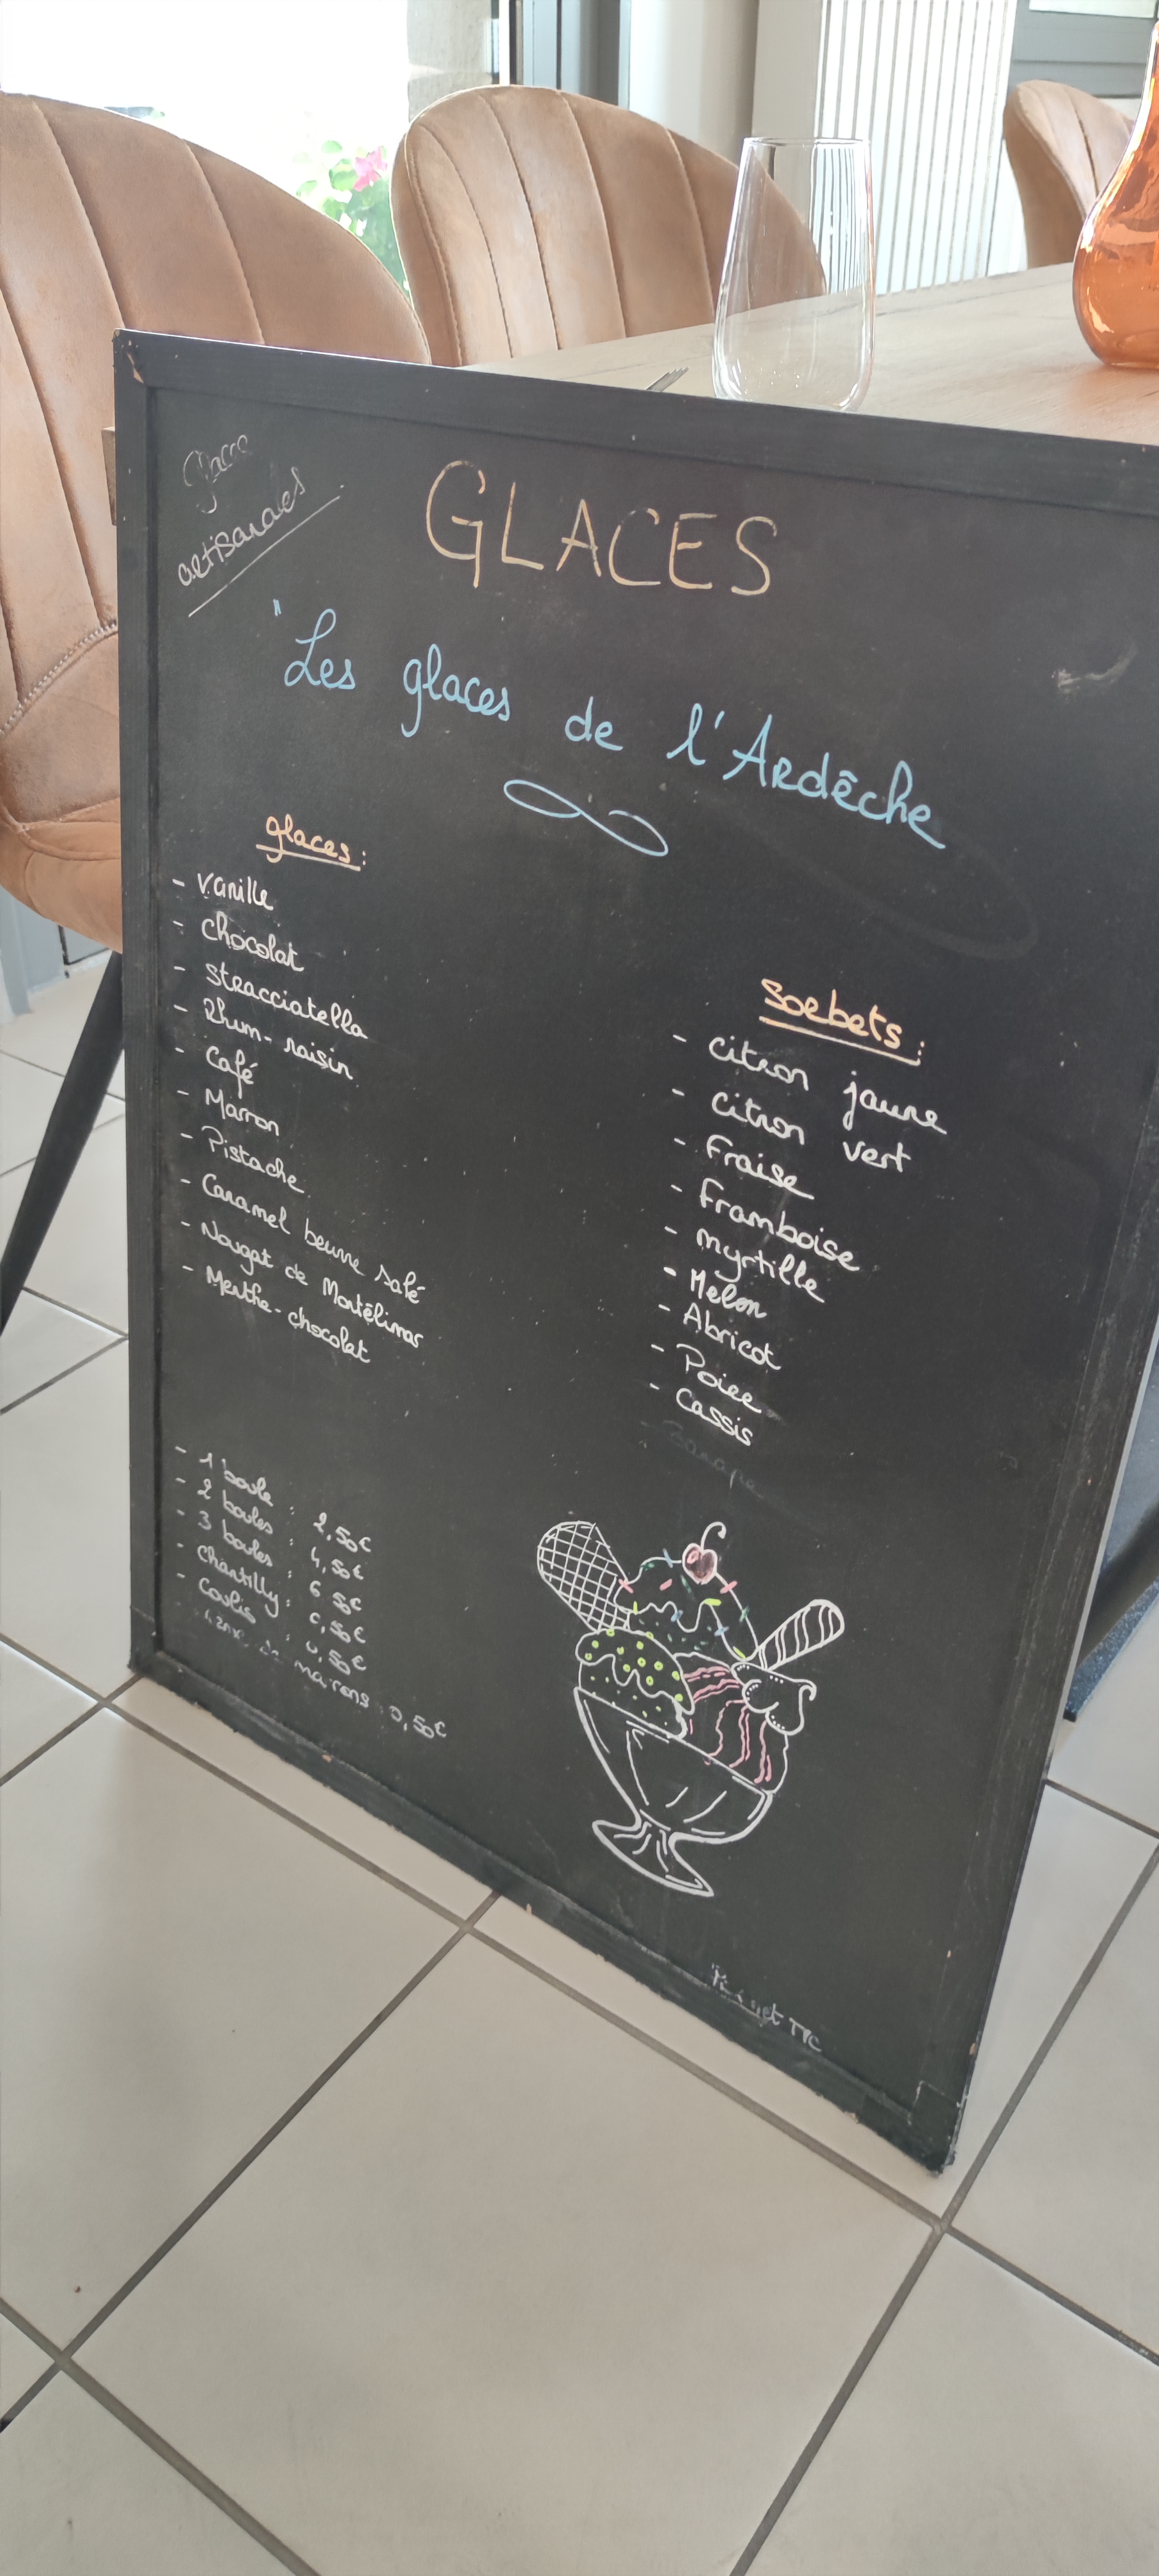 Glaces
artisanales
GLACES
"Les glaces de l'Ardêche
glaces :
- Vanille
- Chocolat
- Stracciatella
- Rhum-raisin
- Café
- Marron
- Pistache
- Caramel beurre salé
- Nougat de Montélimar
- Menthe-chocolat
- 1 boule : 2,50€
- 2 boules : 4,50€
- 3 boules : 6 50€
- Chantilly : 0,50€
- Coulis : 0,50€
marrons : 0,50€
Sorbets :
- Citron jaune
- Citron vert
- Fraise
- Framboise
- Myrtille
- Melon
- Abricot
- Poire
- Cassis
TTC